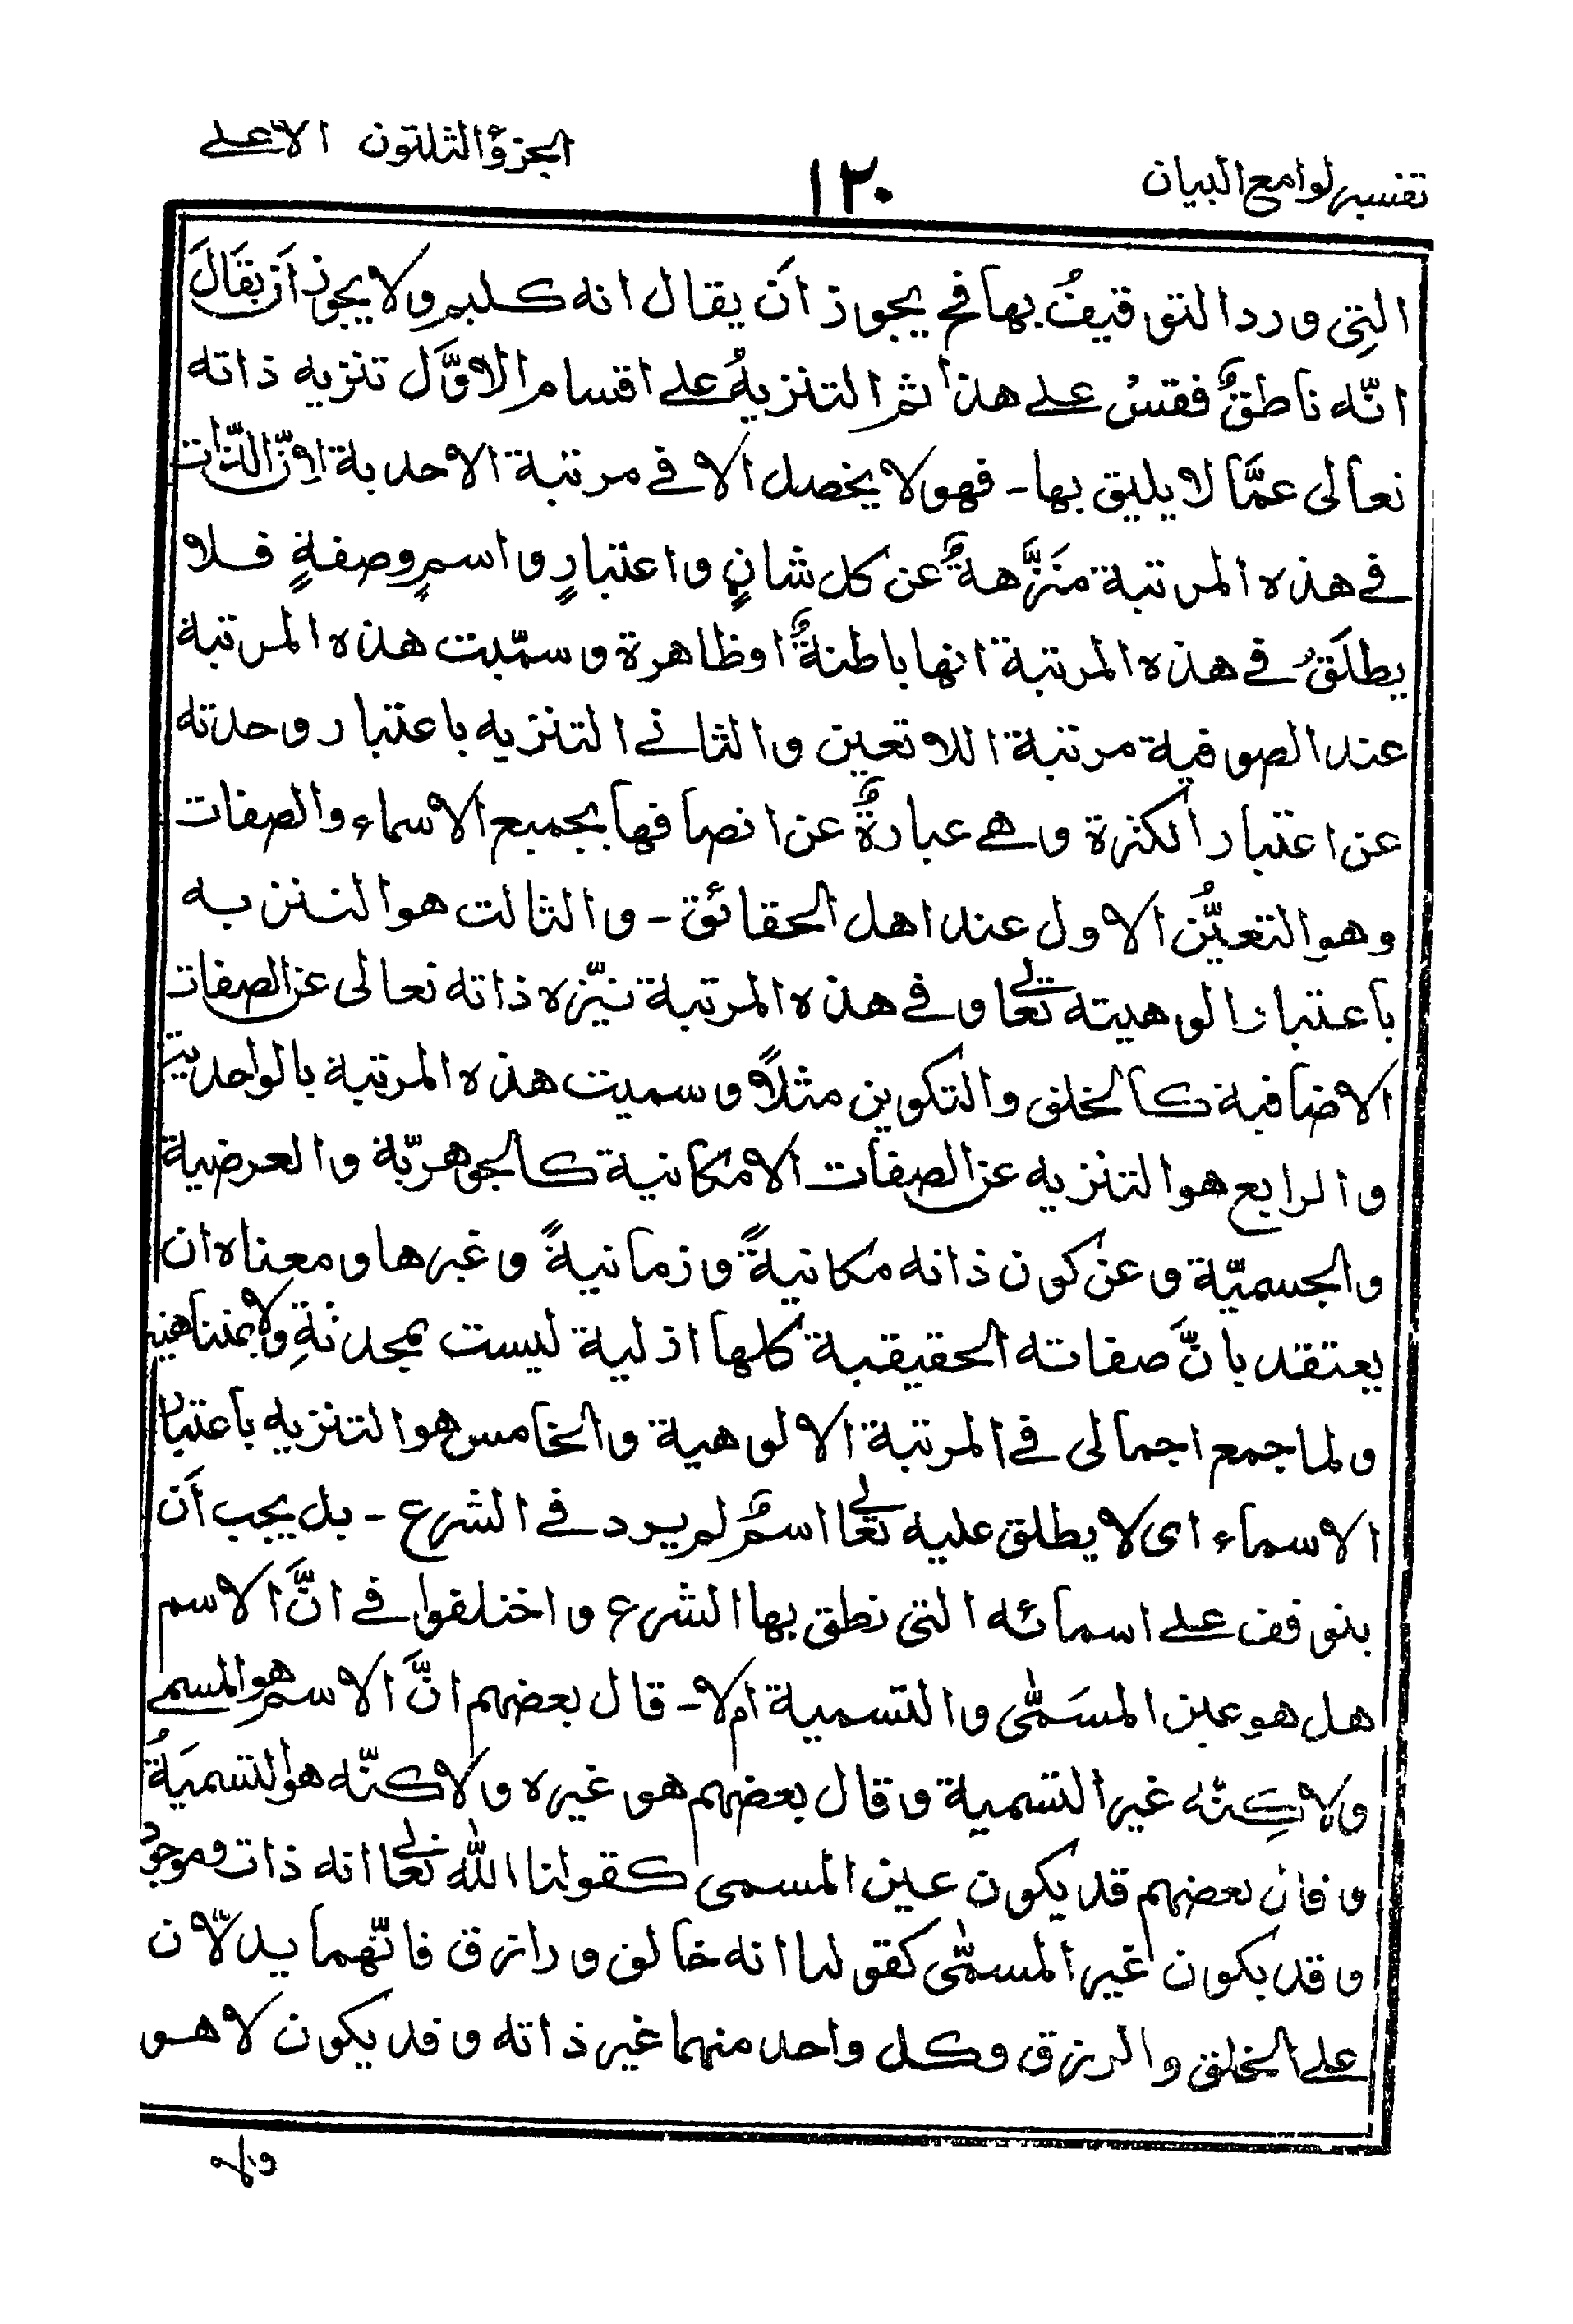 تفسير لوامع البيان
١٢٠
الجزؤ الثلثون الاعلے
التِى ورد التوقيفُ بها فح يجوز اَن يقال انه كليم ولا يجوز اَن يقَالَ
انّه ناطقٌ فقسُ علے هذا ثم التنزيهُ علے اقسام الاوَّل تنزيه ذاته
تعالى عمَّا لا يليق بها - فهو لا يحصل الا فے مرتبة الاحدية لانّ الذّات
فے هذه المرتبة منَزَّهةٌ عن كل شانٍ واعتبارٍ واسمٍ وصفةٍ فلا
يطلَقُ فے هذه المرتبة انها باطنةٌ اوظاهرة وسمّيت هذه المرتبة
عند الصوفية مرتبة اللاتعين والثانے التنزيه باعتبار وحدته
عن اعتبار الكثرة وهے عبارةٌ عن اتصافها بجميع الاسماء والصفات
وهو التعيُّن الاول عند اهل الحقائق - والثالث هو التنزيه
باعتبار الوهيته تعالے وفے هذه المرتبة نيّزه ذاته تعالى عن الصفات
الاضافية كالخلق والتكوين مثلاً وسميت هذه المرتبة بالواحدية
والرابع هو التنزيه عن الصفات الامكانية كالجوهريّة والعرضية
والجسميّة وعن كون ذاته مكانيةً وزمانيةً وغيرها ومعناه ان
يعتقد بانَّ صفاته الحقيقية كلها ازلية ليست بمحدثةِ ولا بمتناهية
ولما جمع اجمالى فے المرتبة الالوهية والخامس هو التنزيه باعتبار
الاسماء اى لا يطلق عليه تعالے اسمٌ لم يرد فے الشرع - بل يجب اَن
يتوقف علے اسمائه التى نطق بها الشرع واختلفوا فے انَّ الاسم
هل هو عين المسَمّٰى والتسمية ام لا - قال بعضهم انَّ الاسم هو المسمے
ولاكِنّه غير التسمية وقال بعضهم هو غيره ولاكنّه هو التسميَةُ
وقال بعضهم قد يكون عين المسمى كقولنا الله تعالے انه ذات وموجود
وقد يكون غير المسمّٰى كقولنا انه خالق ورازق فانّهما يدلّان
علے الخلق والرزق وكل واحد منهما غير ذاته وقد يكون لا هو